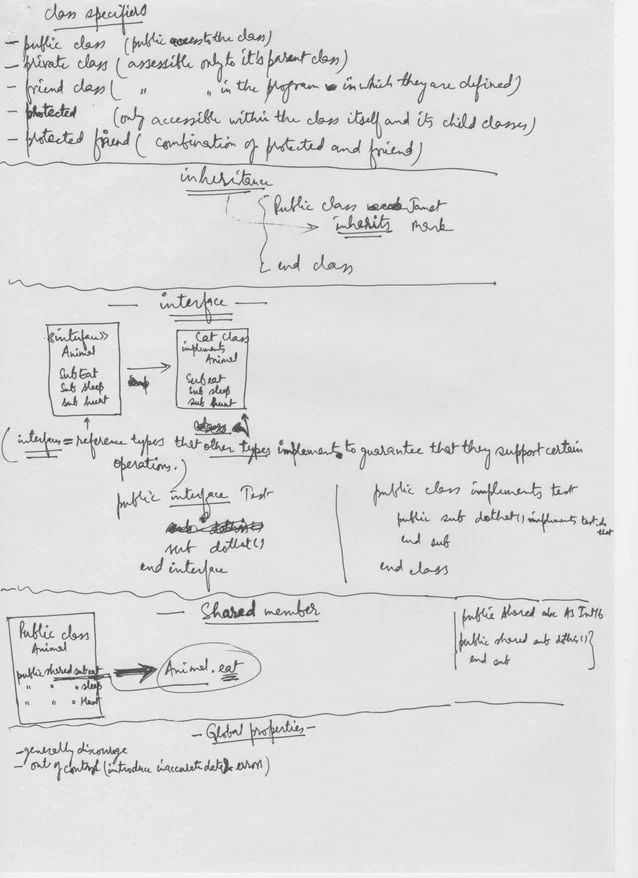 class specifiers
- public class (public access to the class)
- private class (assessible only to it's parent class)
- friend class ( " " in the program in which they are defined)
- protected (only accessible within the class itself and its child classes)
- protected friend ( combination of protected and friend)
inheritance
Public class Janet
inherits Mark
end class
- interface -
<<interface>>
Animal
Sub Eat
Sub sleep
sub hunt
Cat class
implements
Animal
Sub eat
Sub sleep
sub hunt
(interfaces = reference types that other types implement to guarantee that they support certain
operations.)
public interface Test
sub dothat()
end interface
public class implements test
public sub dothat() implements test.do
that
end sub
end class
- Shared member
Public class
Animal
public shared sub eat
" " " sleep
" " " Hunt
Animal.eat
public shared abc As Int16
public shared sub dothis()
end sub
- Global properties -
- generally discourage
- out of control (introduce inaccurate data & errors)